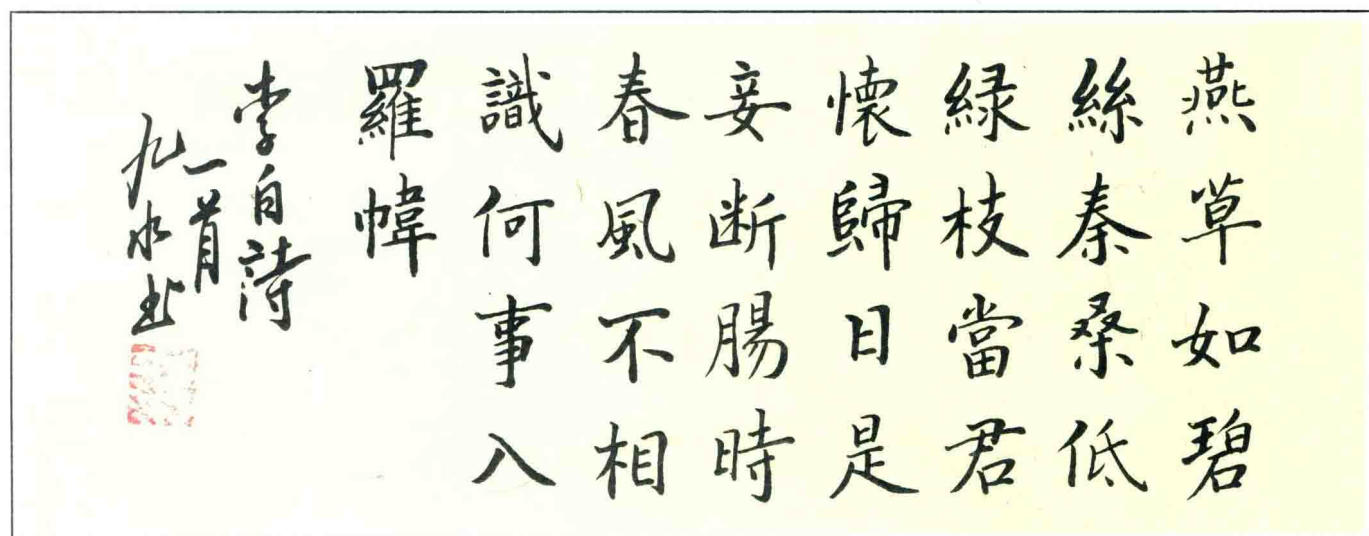 燕草如碧
絲秦桑低
緑枝當君
懷歸日是
妾断腸時
春風不相
識何事入
羅幃
李白詩
一首
九水书